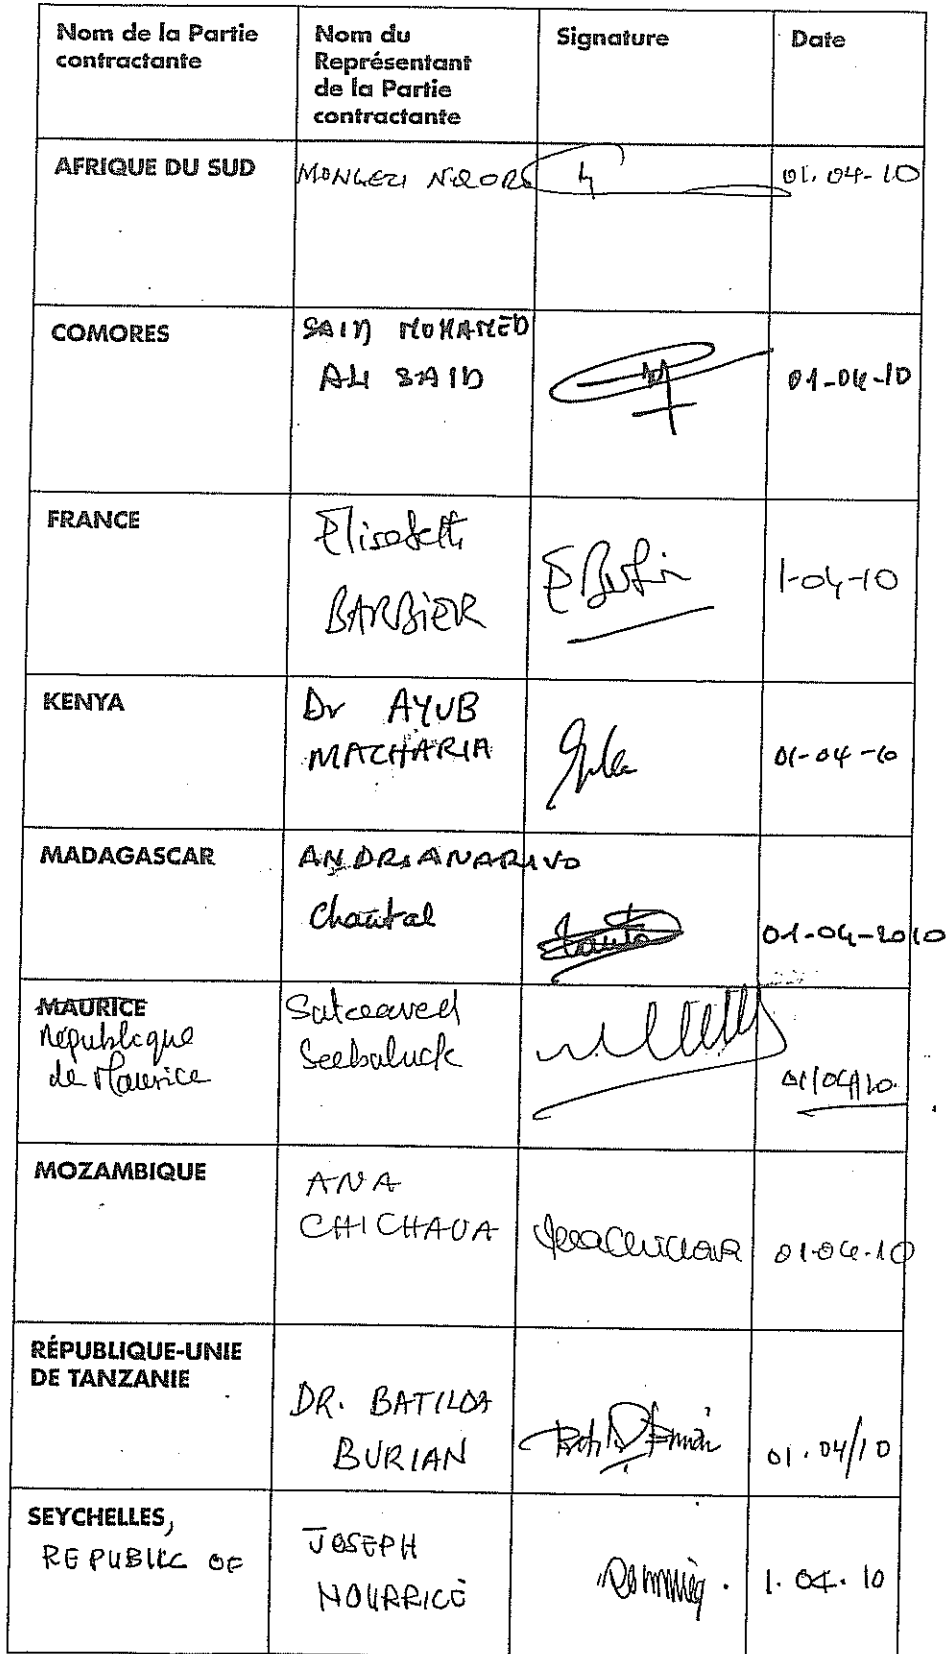 Nom de la Partie
contractante
Nom du
Représentant
de la Partie
contractante
Signature
Date
AFRIQUE DU SUD
MONGEZI
01.04-10
COMORES
SAID MOHAMED
ALI SAID
01-04-10
FRANCE
Elisabeth
BARBIER
1-04-10
KENYA
Dr AYUB
MACHARIA
01-04-10
MADAGASCAR
ANDRIANARIVO
Chantal
01-04-2010
MAURICE
République
de Maurice
Sateeaved
Seebaluck
01/04/10
MOZAMBIQUE
ANA
CHICHAVA
01-04-10
RÉPUBLIQUE-UNIE
DE TANZANIE
DR. BATILDA
BURIAN
01.04/10
SEYCHELLES,
REPUBLIC OF
JOSEPH
NOURRICE
1.04.10